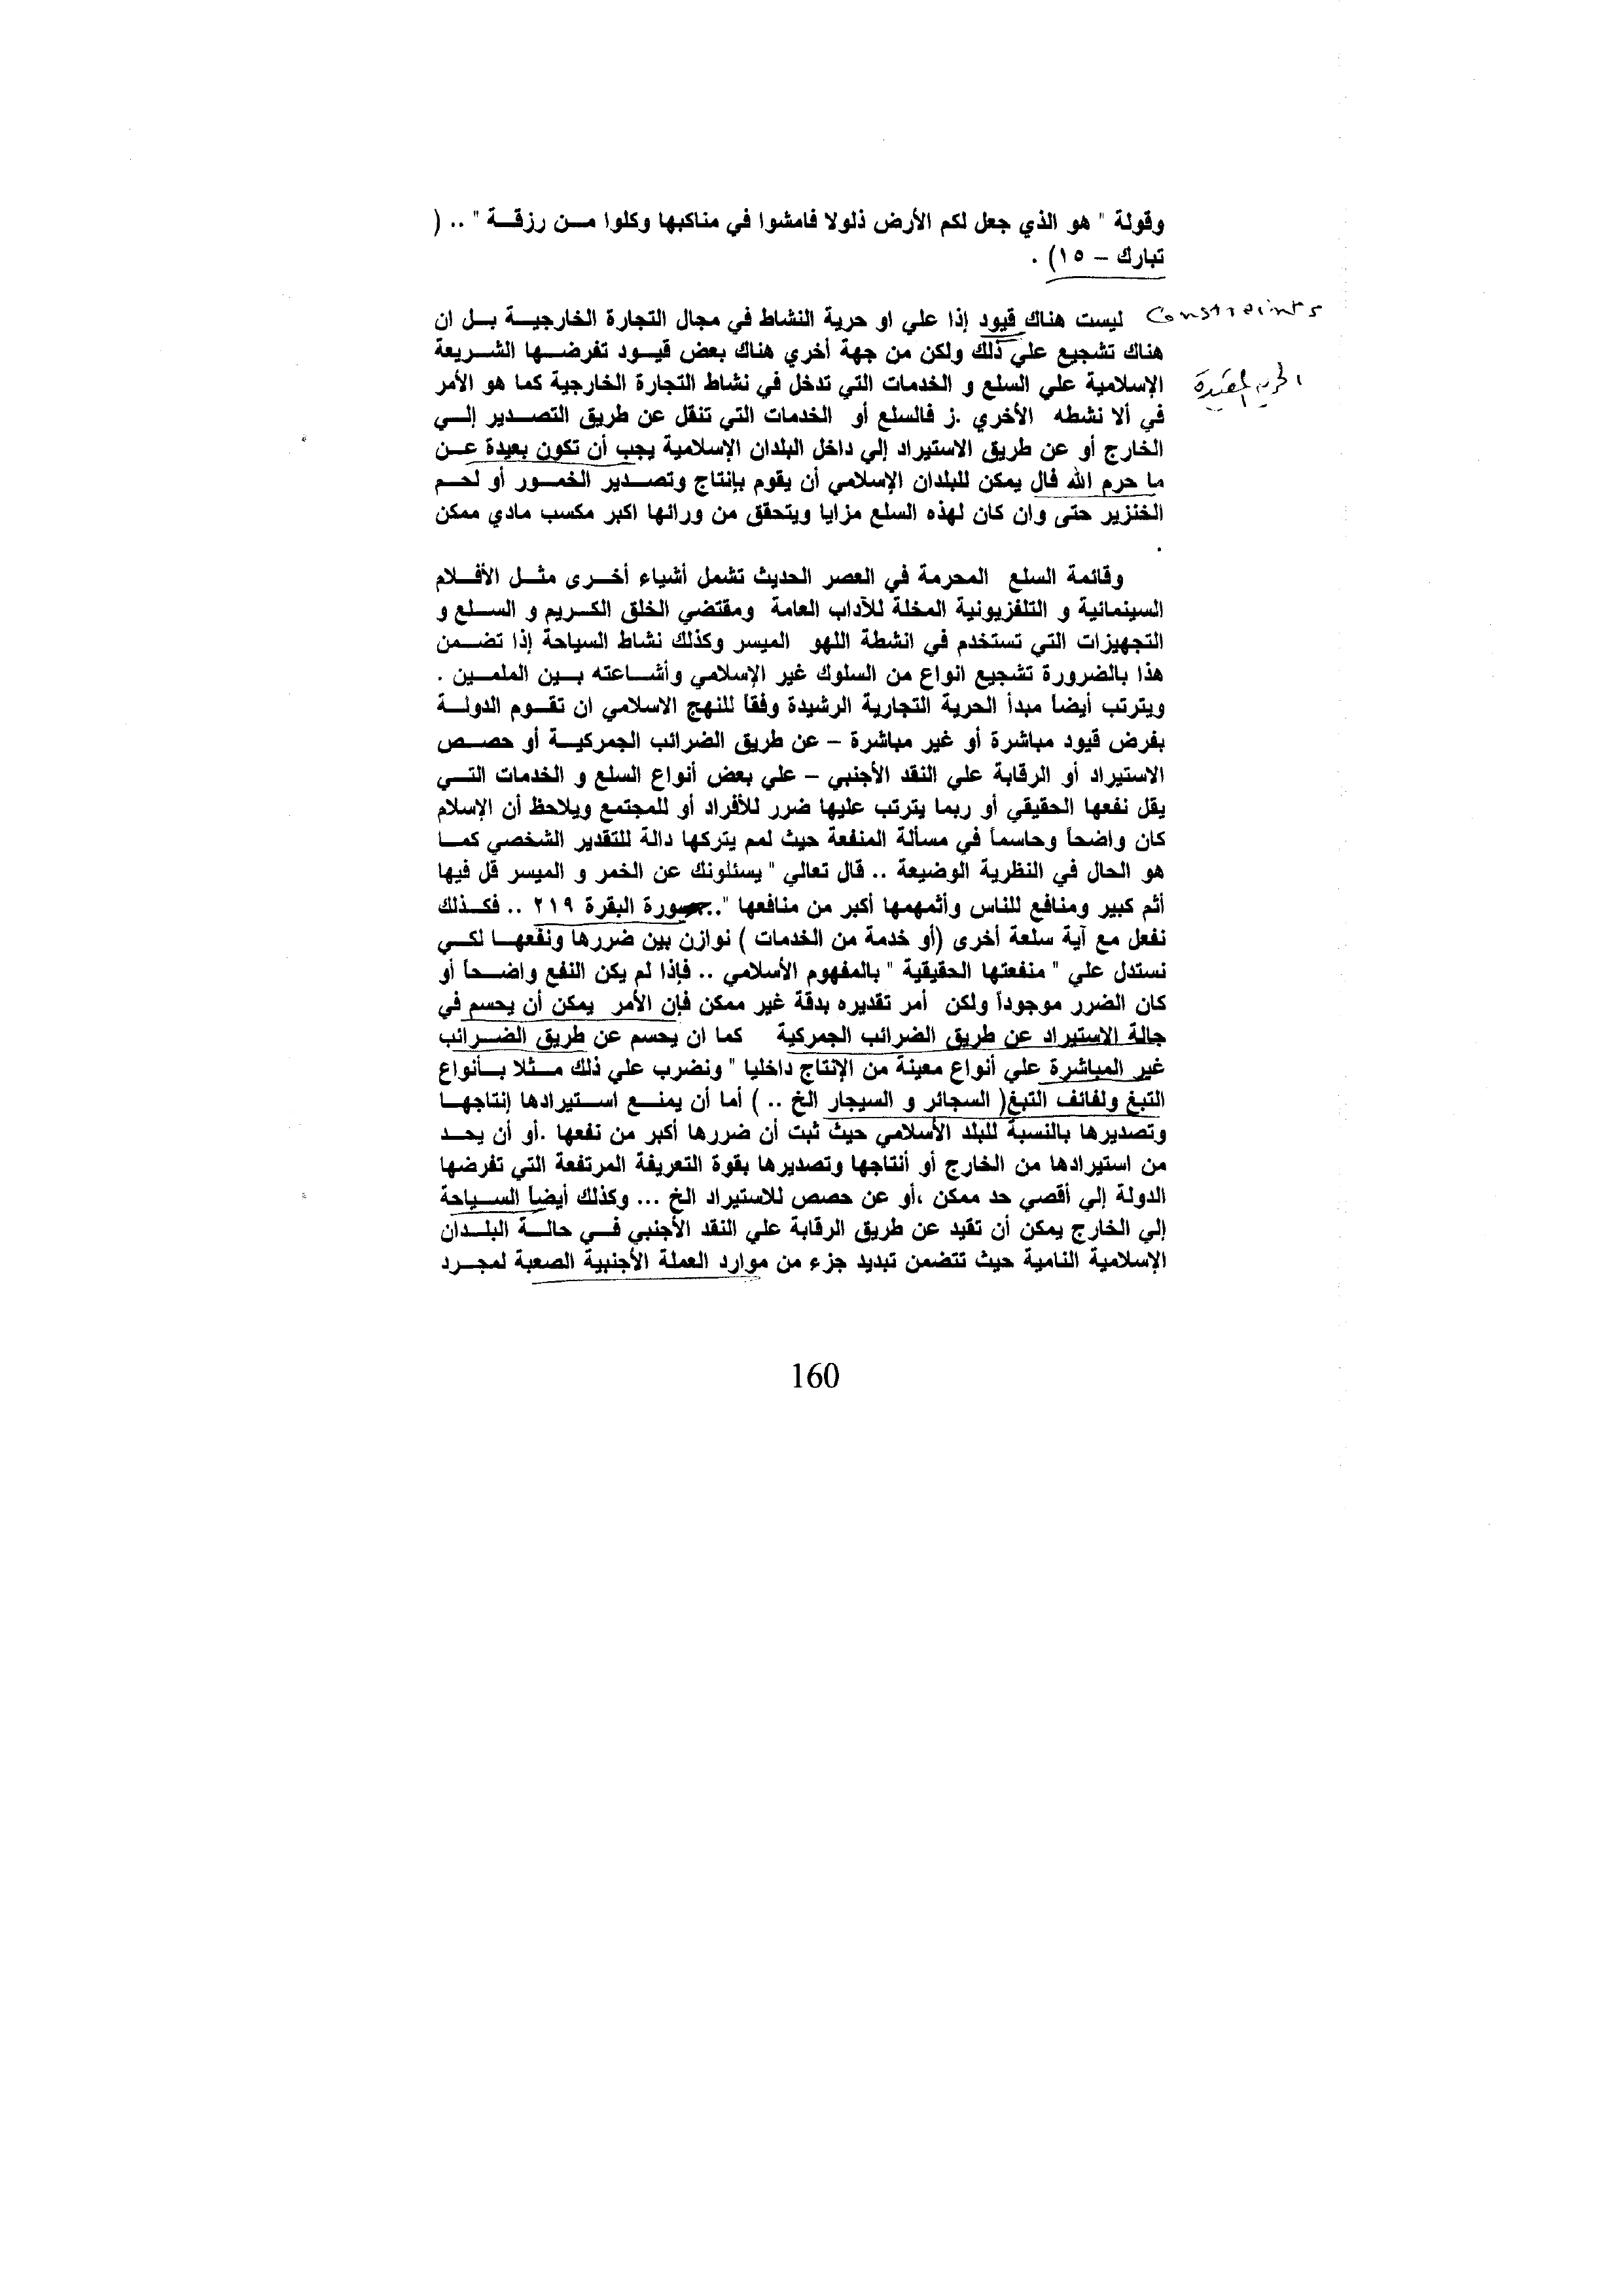 وقولة " هو الذي جعل لكم الأرض ذلولا فامشوا في مناكبها وكلوا من رزقة " .. (
تبارك – ١٥) .
Constraints
ليست هناك قيود إذا علي او حرية النشاط في مجال التجارة الخارجية بل ان
هناك تشجيع علي ذلك ولكن من جهة أخري هناك بعض قيود تفرضها الشريعة
الحرية المقيدة
الإسلامية علي السلع و الخدمات التي تدخل في نشاط التجارة الخارجية كما هو الأمر
في ألا نشطه الأخري .ز فالسلع أو الخدمات التي تنقل عن طريق التصدير إلي
الخارج أو عن طريق الاستيراد إلي داخل البلدان الإسلامية يجب أن تكون بعيدة عن
ما حرم الله فال يمكن للبلدان الإسلامي أن يقوم بإنتاج وتصدير الخمور أو لحم
الخنزير حتى وان كان لهذه السلع مزايا ويتحقق من ورائها اكبر مكسب مادي ممكن
.
وقائمة السلع المحرمة في العصر الحديث تشمل أشياء أخرى مثل الأفلام
السينمائية و التلفزيونية المخلة للآداب العامة ومقتضي الخلق الكريم و السلع و
التجهيزات التي تستخدم في انشطة اللهو الميسر وكذلك نشاط السياحة إذا تضمن
هذا بالضرورة تشجيع انواع من السلوك غير الإسلامي وأشاعته بين الملمين .
ويترتب أيضا مبدأ الحرية التجارية الرشيدة وفقا للنهج الاسلامي ان تقوم الدولة
بفرض قيود مباشرة أو غير مباشرة – عن طريق الضرائب الجمركية أو حصص
الاستيراد أو الرقابة علي النقد الأجنبي – علي بعض أنواع السلع و الخدمات التي
يقل نفعها الحقيقي أو ربما يترتب عليها ضرر للأفراد أو للمجتمع ويلاحظ أن الإسلام
كان واضحاً وحاسماً في مسألة المنفعة حيث لمم يتركها دالة للتقدير الشخصي كما
هو الحال في النظرية الوضيعة .. قال تعالي " يسئلونك عن الخمر و الميسر قل فيها
أثم كبير ومنافع للناس وأثمهمها أكبر من منافعها ".. سورة البقرة ٢١٩ .. فكذلك
نفعل مع آية سلعة أخرى (أو خدمة من الخدمات ) نوازن بين ضررها ونفعها لكي
نستدل علي " منفعتها الحقيقية " بالمفهوم الأسلامي .. فإذا لم يكن النفع واضحاً أو
كان الضرر موجوداً ولكن أمر تقديره بدقة غير ممكن فإن الأمر يمكن أن يحسم في
حالة الاستيراد عن طريق الضرائب الجمركية كما ان يحسم عن طريق الضرائب
غير المباشرة علي أنواع معينة من الإنتاج داخليا " ونضرب علي ذلك مثلا بأنواع
التبغ ولفائف التبغ( السجائر و السيجار الخ .. ) أما أن يمنع استيرادها إنتاجها
وتصديرها بالنسبة للبلد الأسلامي حيث ثبت أن ضررها أكبر من نفعها .أو أن يحد
من استيرادها من الخارج أو أنتاجها وتصديرها بقوة التعريفة المرتفعة التي تفرضها
الدولة إلي أقصي حد ممكن ،أو عن حصص للاستيراد الخ ... وكذلك أيضا السياحة
إلي الخارج يمكن أن تقيد عن طريق الرقابة علي النقد الأجنبي في حالة البلدان
الإسلامية النامية حيث تتضمن تبديد جزء من موارد العملة الأجنبية الصعبة لمجرد
160